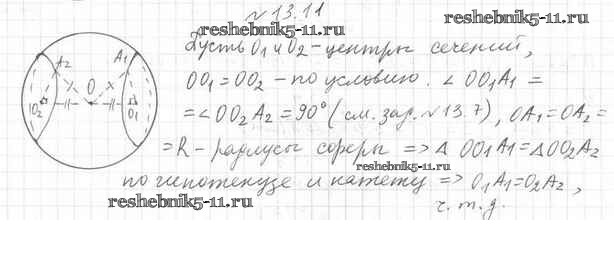 № 13.11
reshebnik5-11.ru
reshebnik5-11.ru
Пусть O1 и O2 - центры сечений,
OO1 = OO2 - по условию. ∠ OO1A1 =
= ∠ OO2A2 = 90° (см. зад. №13.7), OA1 = OA2 =
= R - радиусы сферы => Δ OO1A1 = Δ OO2A2
reshebnik5-11.ru
по гипотенузе и катету => O1A1 = O2A2,
reshebnik5-11.ru
ч.т.д.
A2
A1
O
O2
O1